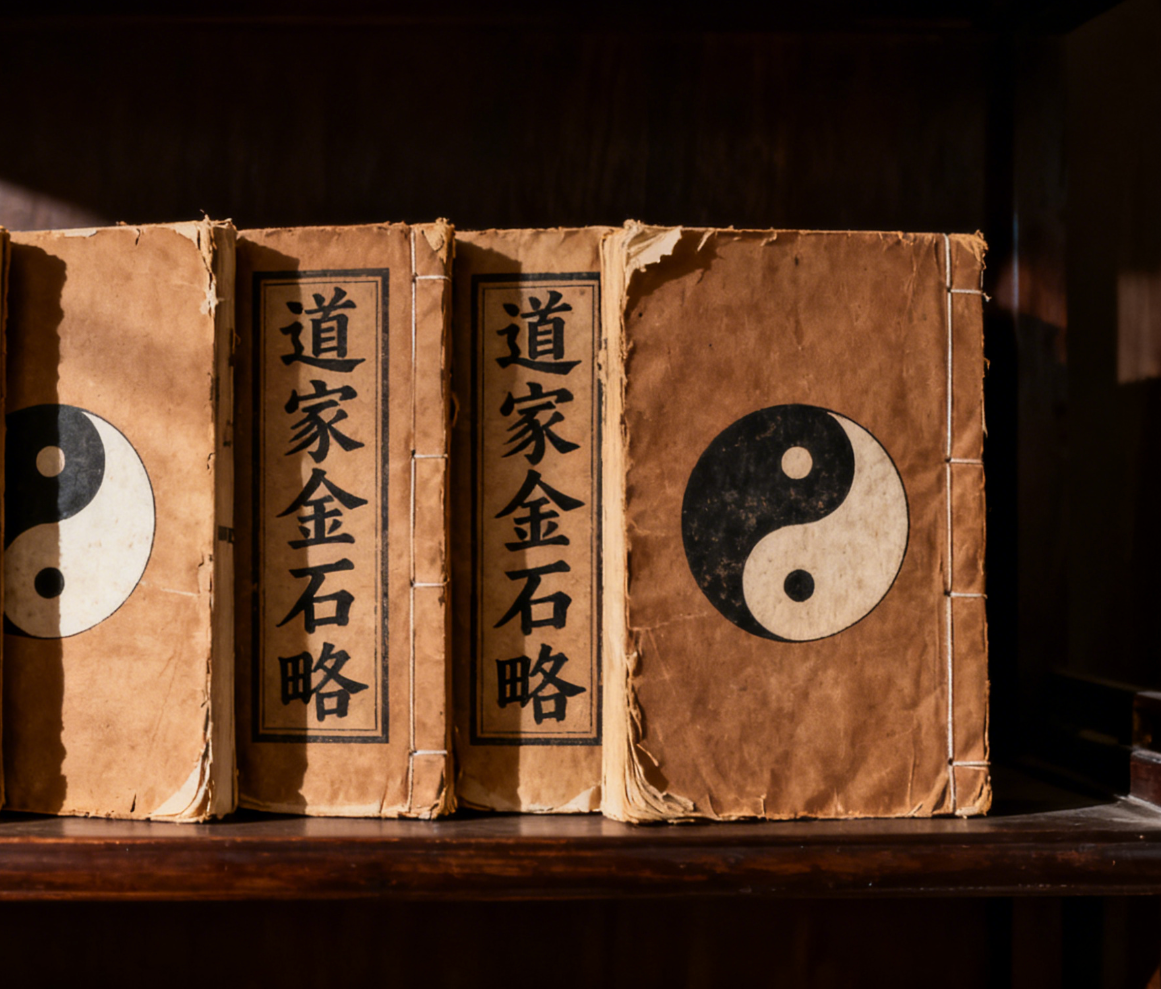 道家金石略
道家金石略